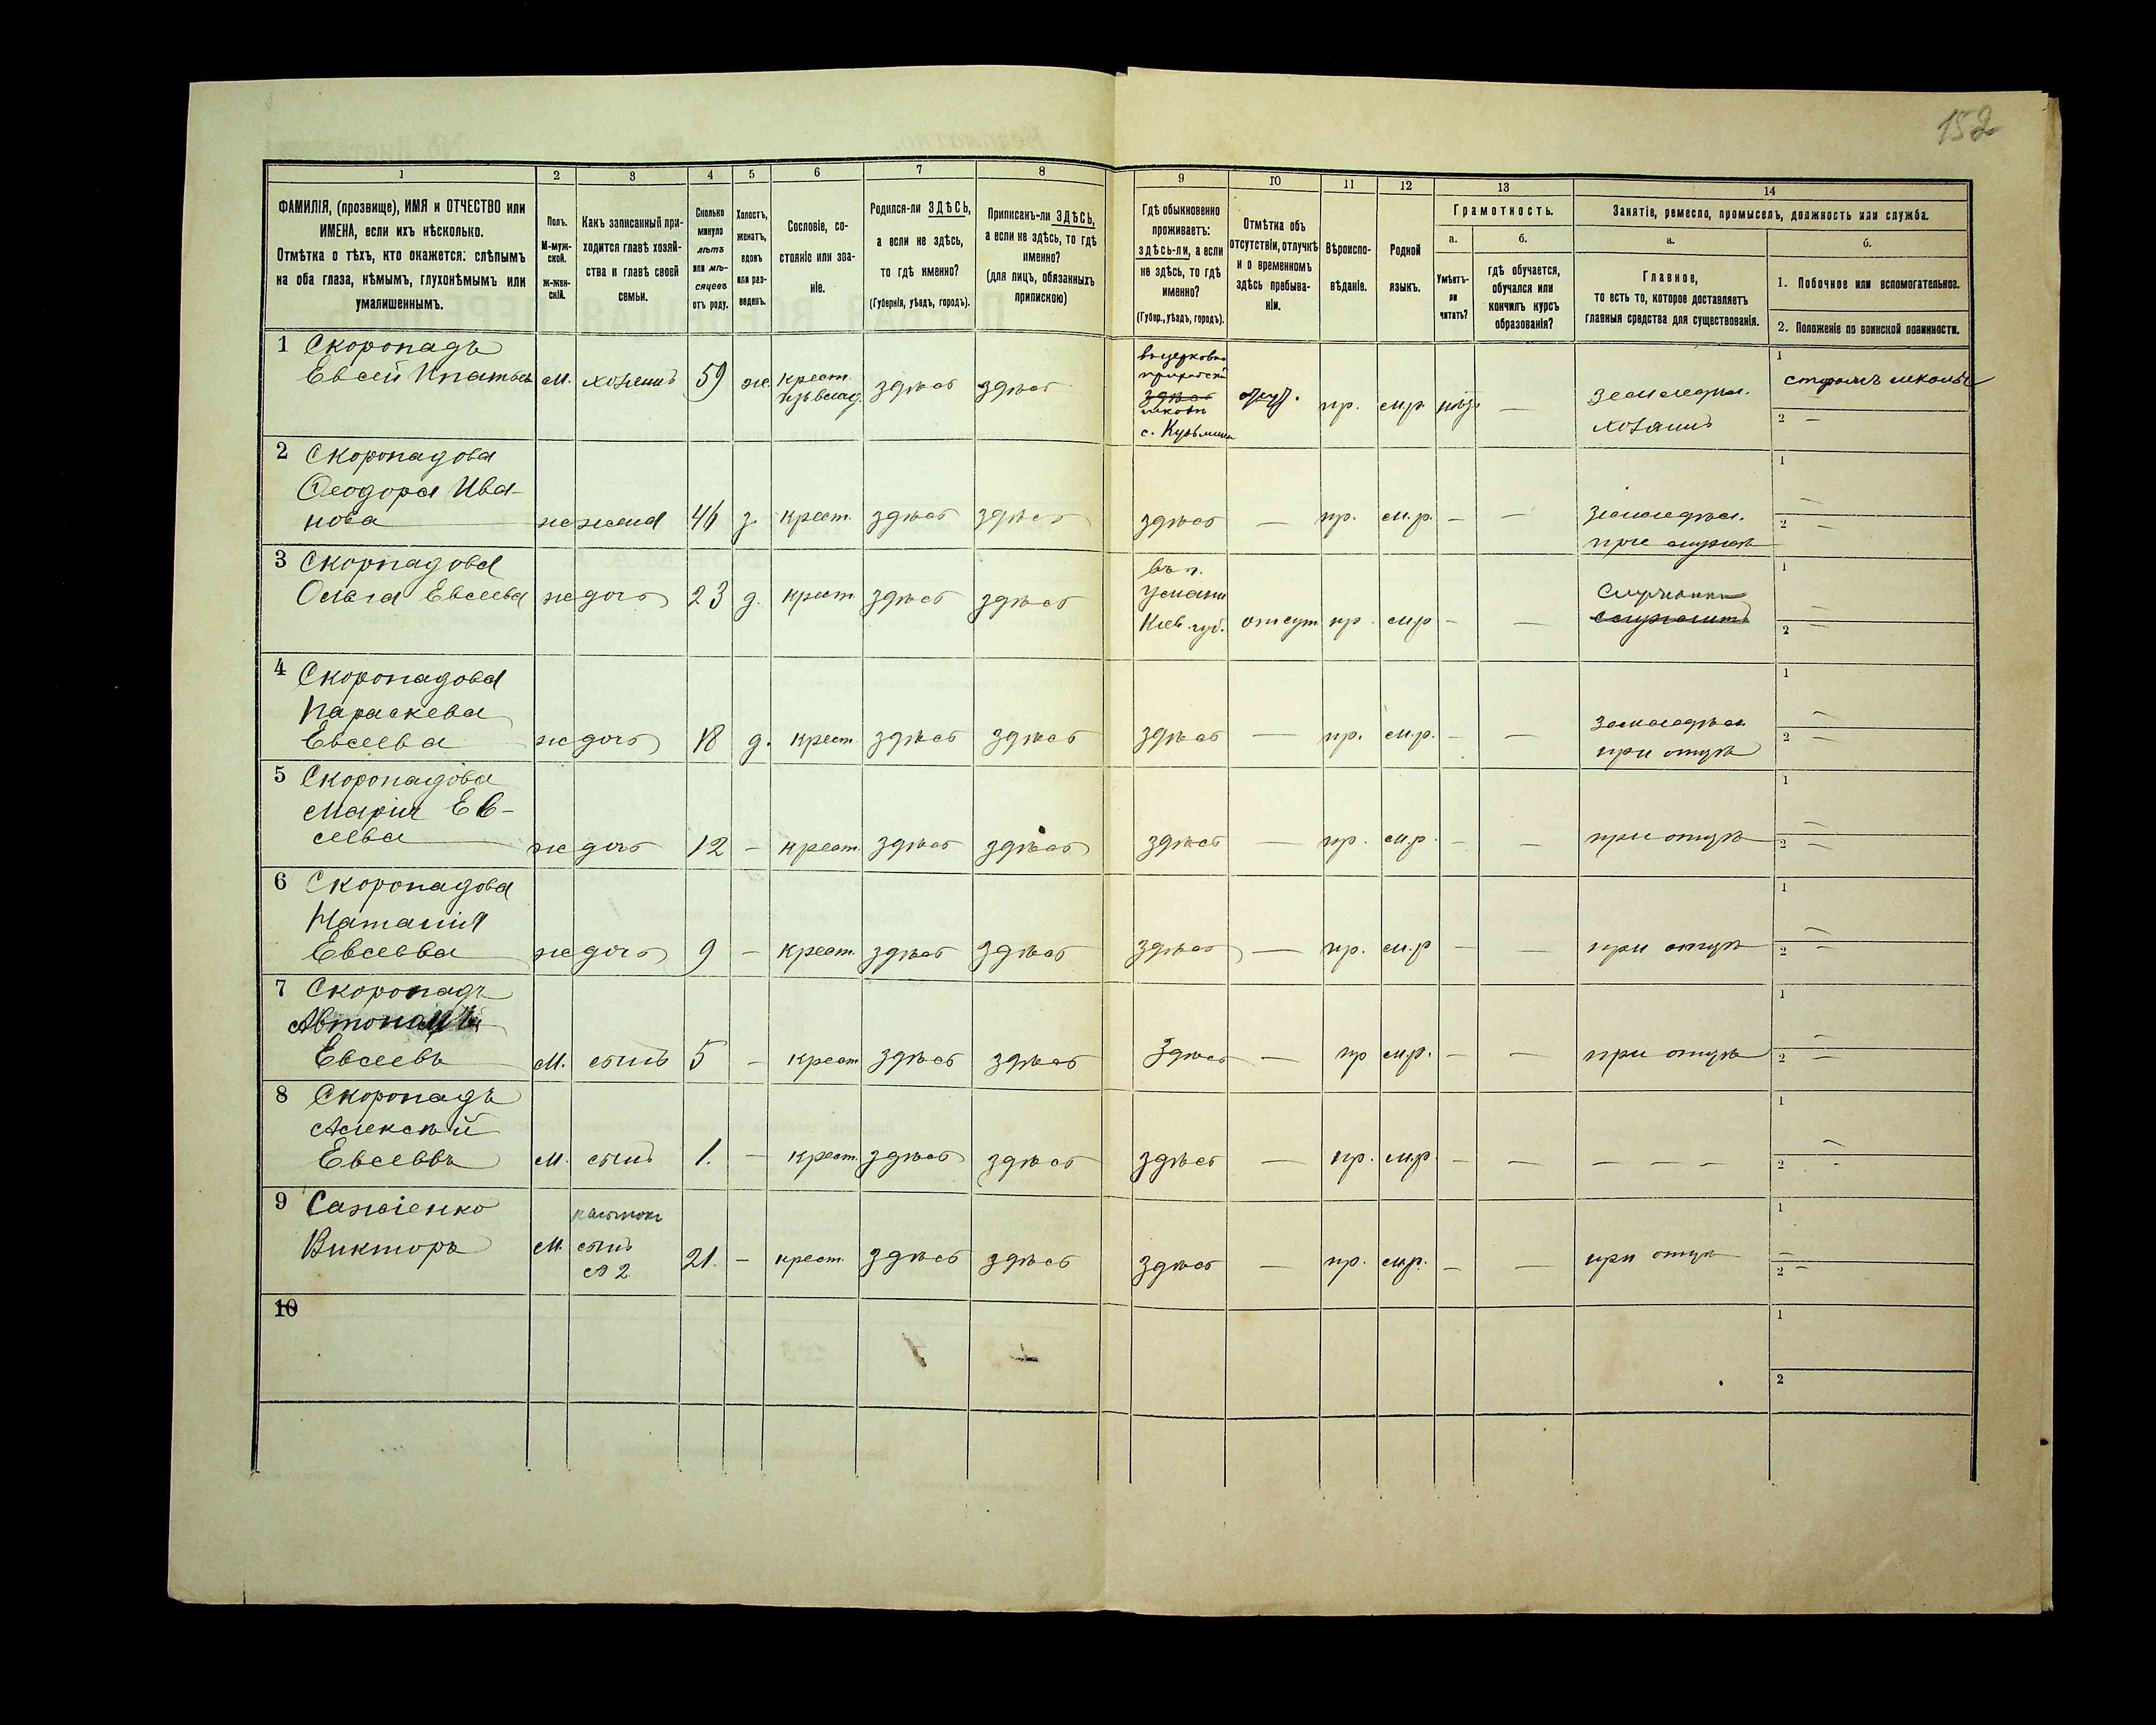 152
1 2 3 4 5 6 7 8 9 10 11 12 13 14
ФАМИЛІЯ, (прозвище), ИМЯ и ОТЧЕСТВО или
ИМЕНА, если ихъ нѣсколько.
Отмѣтка о тѣхъ, кто окажется: слѣпымъ
на оба глаза, нѣмымъ, глухонѣмымъ или
умалишеннымъ.
Полъ.
М-муж-
ской.
Ж-жен-
скій.
Какъ записанный при-
ходится главѣ хозяй-
ства и главѣ своей
семьи.
Сколько
минуло
лѣтъ
или мѣ-
сяцевъ
отъ роду.
Холостъ,
женатъ,
вдовъ
или раз-
веденъ.
Сословіе, со-
стояніе или зва-
ніе.
Родился-ли ЗДѢСЬ,
а если не здѣсь,
то гдѣ именно?
(Губернія, уѣздъ, городъ).
Приписанъ-ли ЗДѢСЬ,
а если не здѣсь, то гдѣ
именно?
(для лицъ, обязанныхъ
припискою)
Гдѣ обыкновенно
проживаетъ:
здѣсь-ли, а если
не здѣсь, то гдѣ
именно?
(Губер., уѣздъ, городъ).
Отмѣтка объ
отсутствіи, отлучкѣ
и о временномъ
здѣсь пребыва-
ніи.
Вѣроиспо-
вѣданіе.
Родной
языкъ.
Грамотность.
а.
Умѣетъ-
ли
читать?
б.
гдѣ обучается,
обучался или
кончилъ курсъ
образованія?
Занятіе, ремесло, промыселъ, должность или служба.
а.
Главное,
то есть то, которое доставляетъ
главныя средства для существованія.
б.
1. Побочное или вспомогательное.
2. Положеніе по воинской повинности.
1 Скоропадъ
Евсей Игнатьевъ м. хозяинъ 59 ж. крест.
здѣсь здѣсь
здѣсь
с. Кузьмина
пр. м.р.
хозяинъ
1
2 —
2 Скоропадова
Ѳеодора Ива-
нова ж жена 46 з. крест. здѣсь здѣсь здѣсь — пр. м.р. — — земледѣл.
при мужѣ
1 —
2 —
3 Скоропадова
Ольга Евсеева ж дочь 23 д. крест здѣсь здѣсь
въ г.
Умани
Кіев. губ. отсут пр. м.р — —
1 —
2 —
4 Скоропадова
Параскева
Евсеева ж дочь 18 д. крест. здѣсь здѣсь здѣсь — пр. м.р. — — земледѣл
при отцѣ
1 —
2 —
5 Скоропадова
Марія Ев-
сеева ж дочь 12 — крест. здѣсь здѣсь здѣсь — пр. м.р. — — при отцѣ
1 —
2 —
6 Скоропадова
Наталія
Евсеева ж дочь 9 — крест. здѣсь здѣсь здѣсь — пр. м.р — — при отцѣ
1 —
2 —
7 Скоропадъ
Автономъ
Евсеевъ м. сынъ 5 — крест здѣсь здѣсь здѣсь — пр м.р. — — при отцѣ
1 —
2 —
8 Скоропадъ
Алексѣй
Евсеевъ м. сынъ 1. — крест. здѣсь здѣсь здѣсь — пр. м.р. — — — — —
1 —
2 -
9
Викторъ м. сынъ
№ 2 21. — крест. здѣсь здѣсь здѣсь — пр. м.р. — — при отцѣ
1 —
2 —
10
1
2